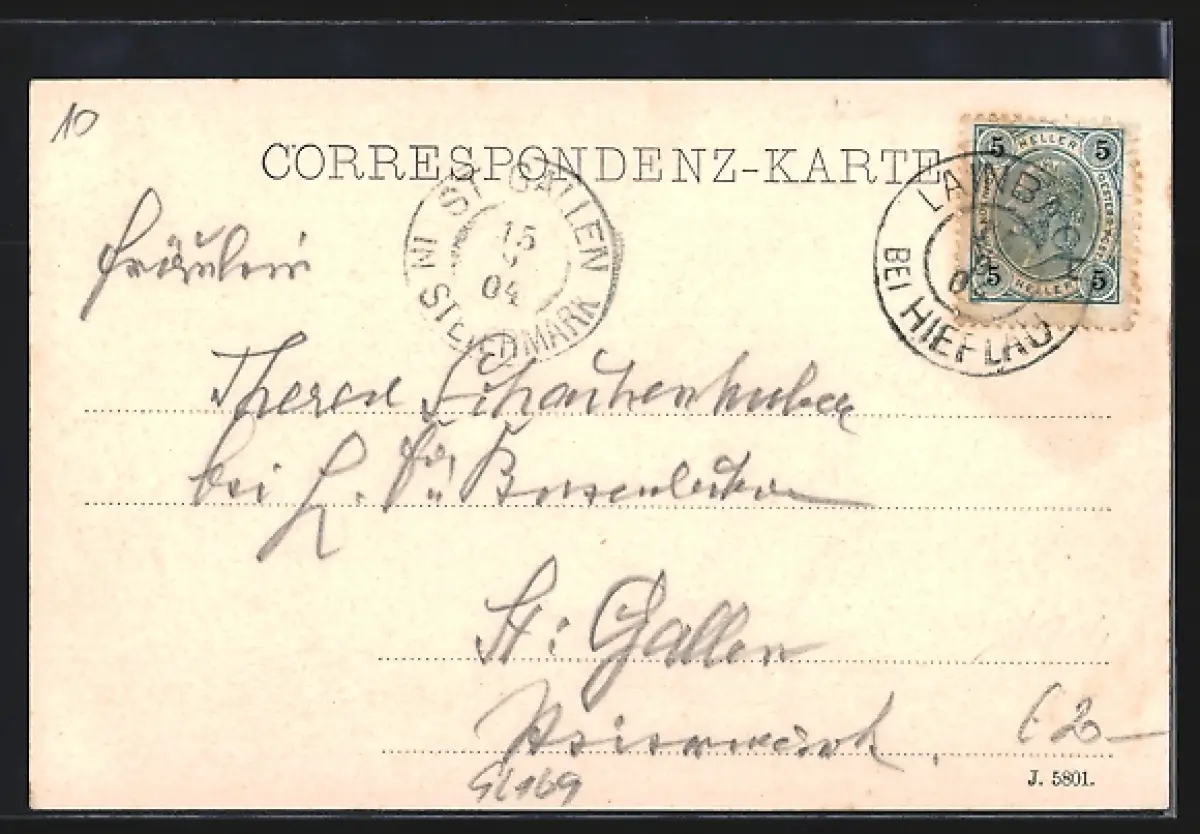 10
CORRESPONDENZ-KARTE
5 HELLER 5
5 HELLER 5
LAINBACH
BEI HIEFLAU
ST. GALLEN
15
04
IN STEIERMARK
Fräulein
Therese Schachenhuber
bei H.
St: Gallen
Steiermark.
€ 20
J. 5801.